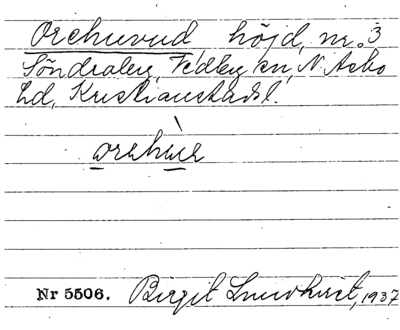 Orehuvud höjd, nr. 3
Söndraby, Vedby sn, N. Åsbo
hd, Kristianstads l.
orehùe
Nr 5506. Birgit Lindkvist, 1937